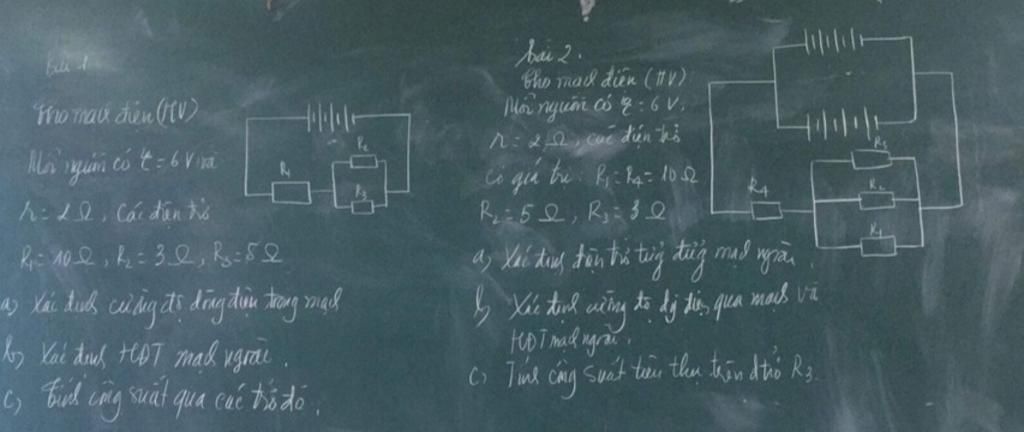 Bài 1
Cho mạch điện (HV)
Mỗi nguồn có ξ = 6 V và
r = 2 Ω, Các điện trở
R₁ = 10 Ω, R₂ = 3 Ω, R₃ = 5 Ω
a) Xác định cường độ dòng điện trong mạch
b) Xác định HĐT mạch ngoài.
c) Tính công suất qua các trở đó.
R₁
R₂
R₃
bài 2.
Cho mạch điện (HV)
Mỗi nguồn có ξ = 6 V.
r = 2 Ω, các điện trở
Có giá trị R₁ = R₄ = 10 Ω
R₂ = 5 Ω, R₃ = 3 Ω
a) Xác định điện trở tương đương mạch ngoài.
b) Xác định cường độ dđ điện qua mạch và
HĐT mạch ngoài.
c) Tính công suất tiêu thụ trên đ trở R₃
R₃
R₄
R₂
R₁